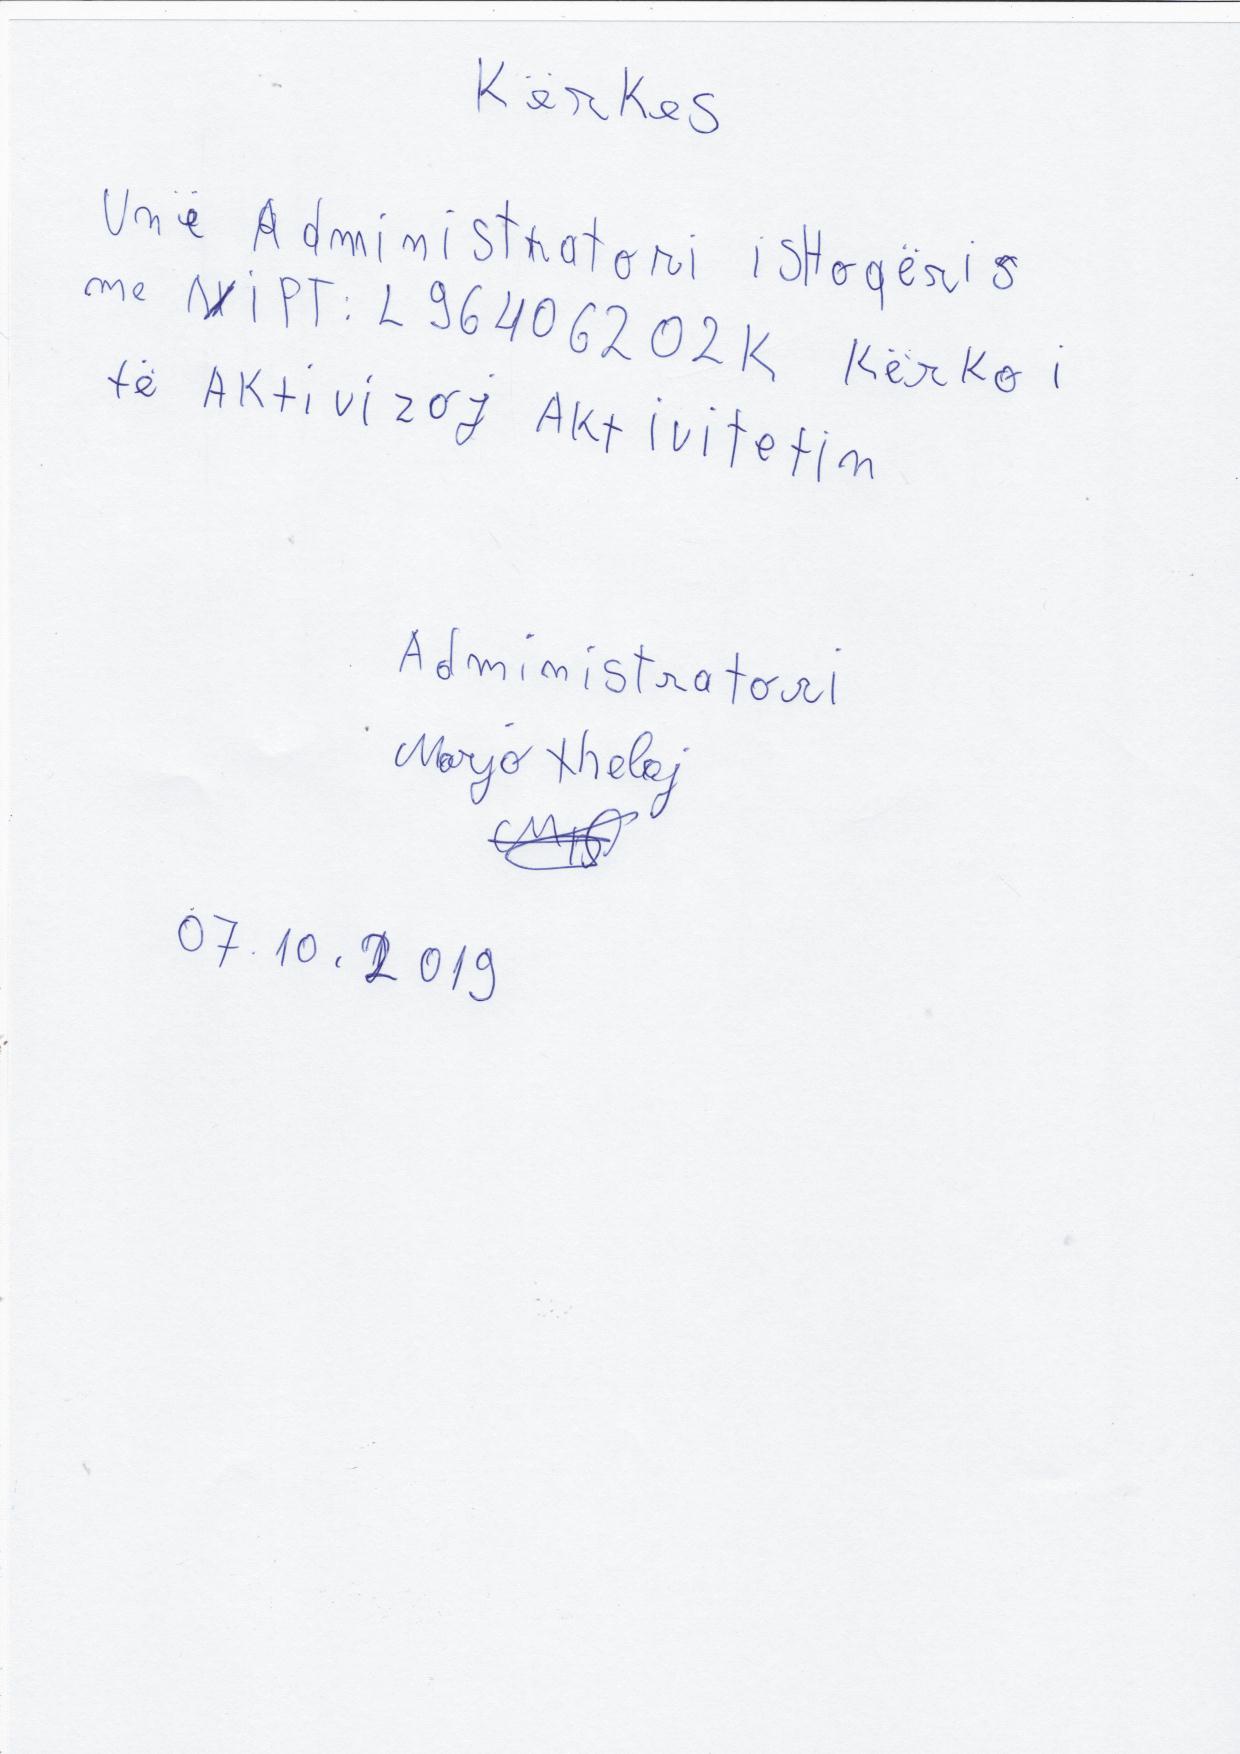 Kërkes
Unë Administratori i sHoqëris
me NIPT: L96406202K Kërkoi
të AKtivizoj AKtivitetin
Administratori
Marjo Xhelaj
07.10.2019